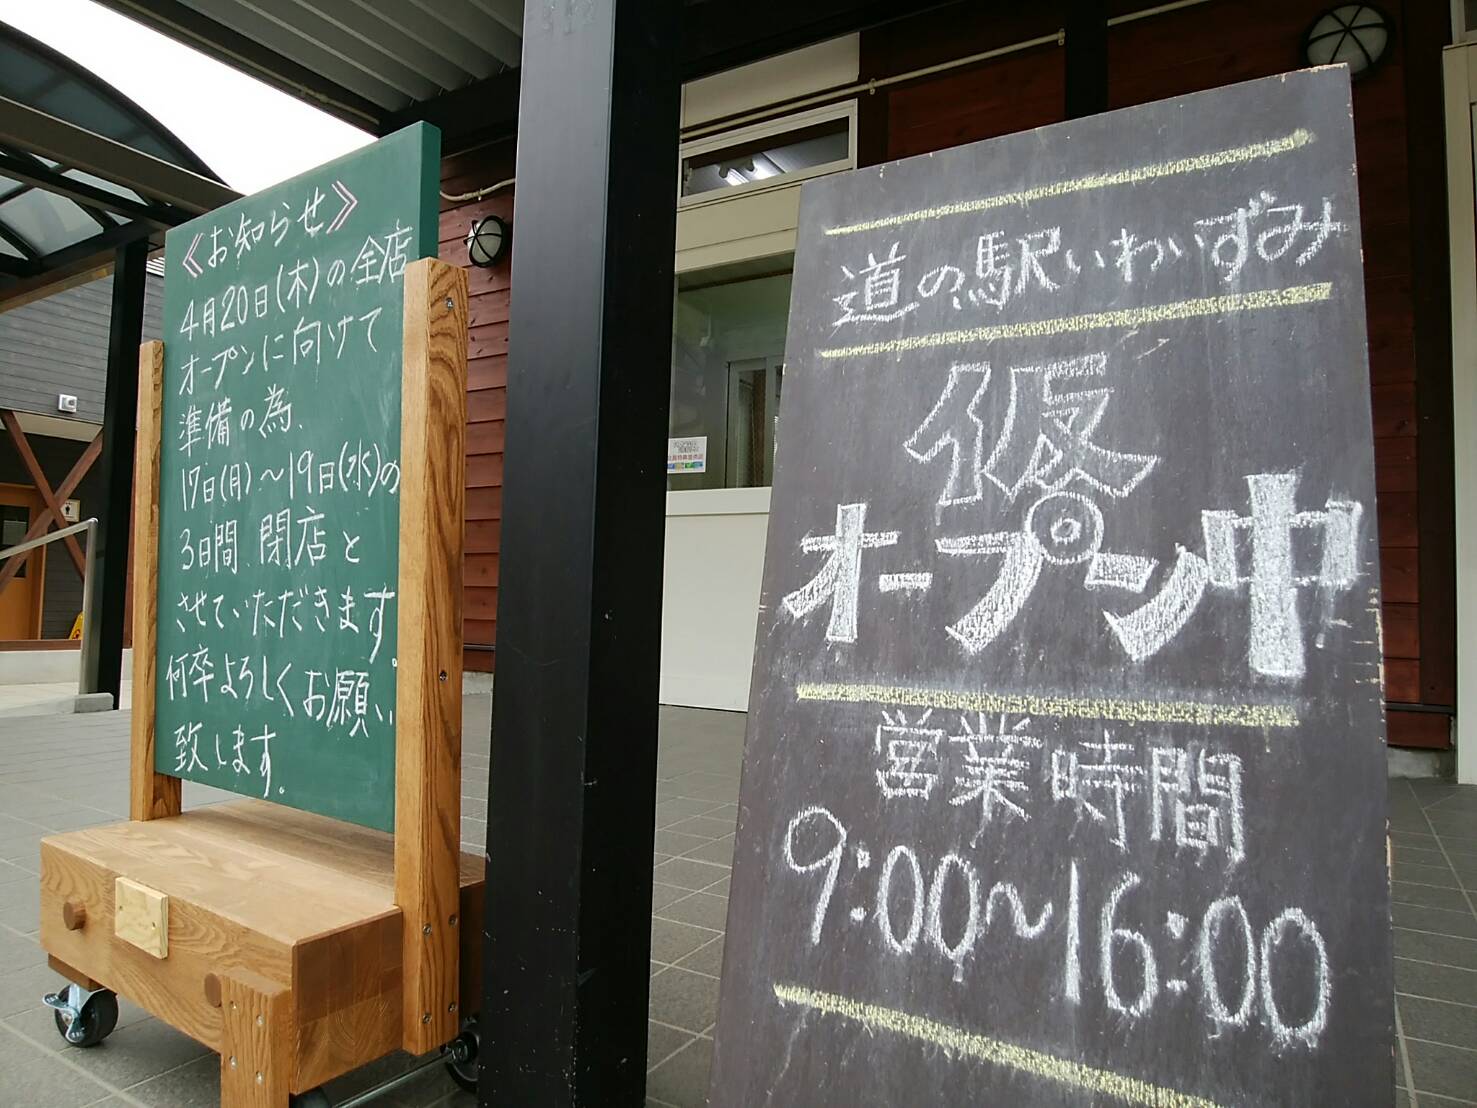 《お知らせ》
4月20日(木)の全店
オープンに向けて
準備の為、
17日(月)～19日(水)の
3日間 閉店と
させていただきます。
何卒よろしくお願い
致します。
道の駅いわいずみ
仮
オープン中
営業時間
9:00～16:00